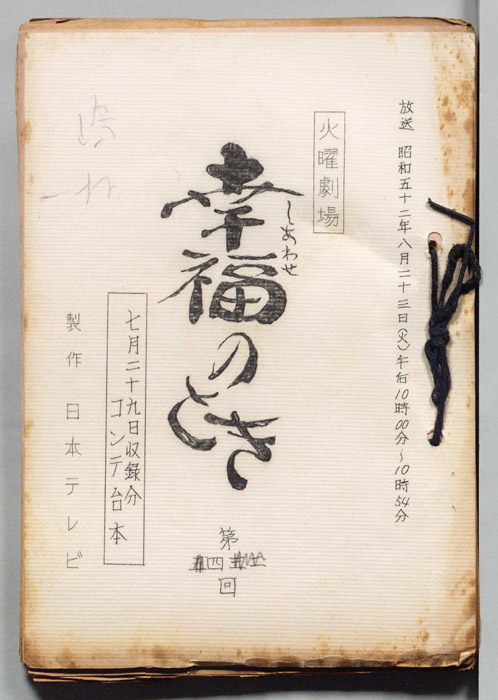 放送 昭和五十二年八月二十三日(火)午后10時00分～10時54分
火曜劇場
しあわせ
幸福のとき
第
四
回
七月二十九日収録分
コンテ台本
製作 日本テレビ